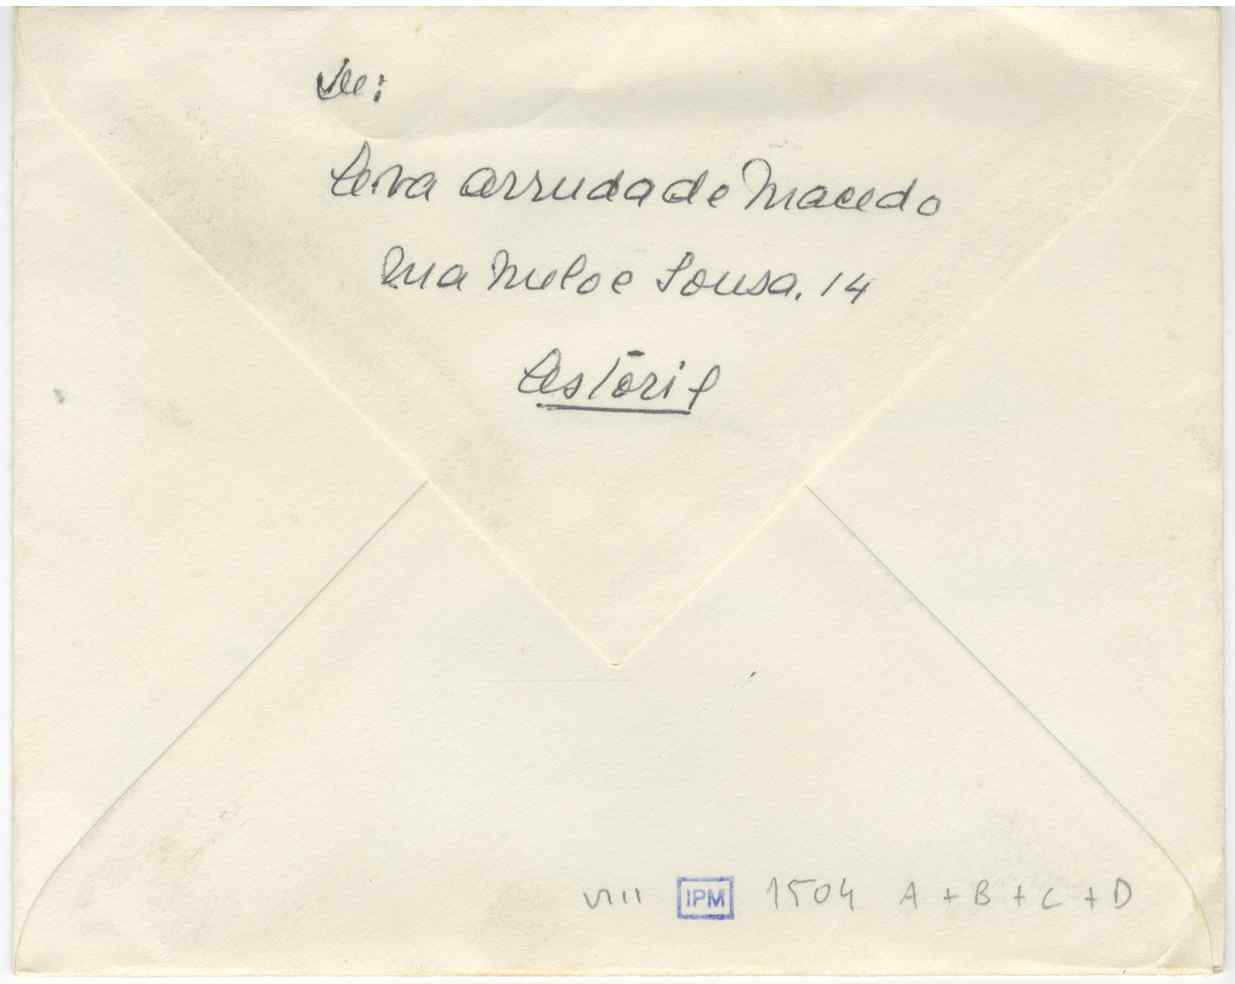 De:
Eva Arruda de Macedo
Rua Melo e Sousa. 14
Estóril
VIII IPM 1504 A + B + C + D